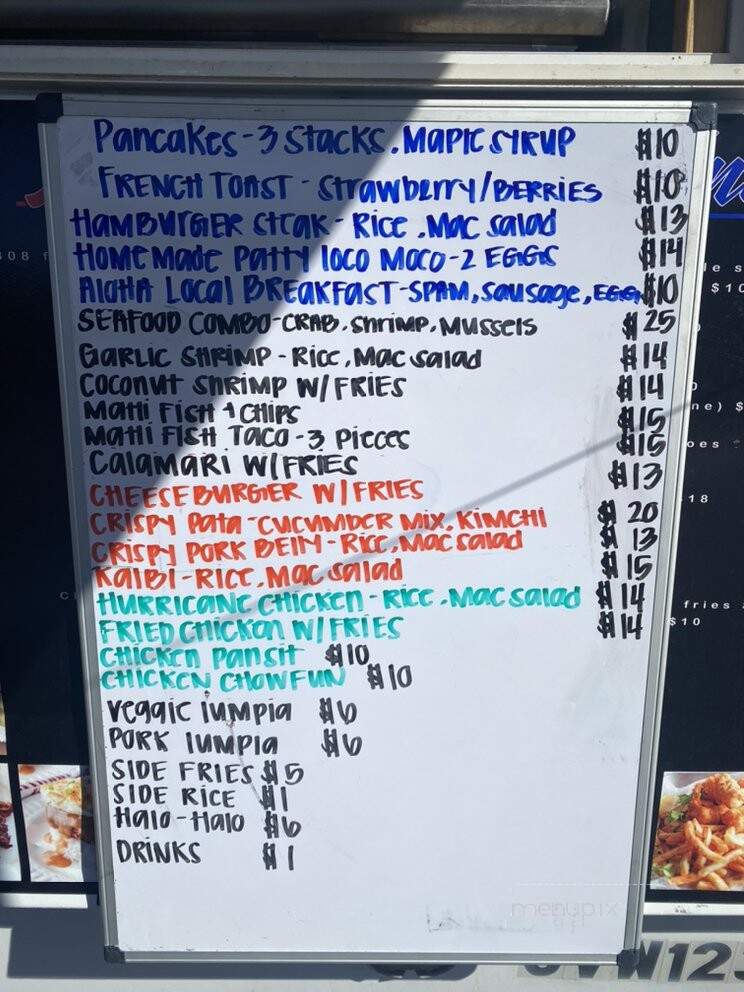 Pancakes - 3 stacks. Maple syrup $10
French Toast - Strawberry/Berries $10
Hamburger Steak - Rice. Mac salad $13
Homemade Patty loco moco - 2 Eggs $14
Aloha Local Breakfast - Spam, sausage, Egg $10
Seafood Combo - Crab. Shrimp. Mussels $25
Garlic Shrimp - Rice, Mac salad $14
Coconut Shrimp w/ Fries $14
Mahi Fish & Chips $15
Mahi Fish Taco - 3 Pieces $15
Calamari w/ Fries $13
Cheeseburger w/ Fries
Crispy Pata - Cucumber mix, Kimchi $20
Crispy Pork Belly - Rice, Mac salad $13
Kalbi - Rice, Mac salad $15
Hurricane Chicken - Rice. Mac salad $14
Fried Chicken w/ Fries $14
Chicken Pansit $10
Chicken Chowfun $10
Veggie lumpia $6
Pork lumpia $6
Side Fries $5
Side Rice $1
Halo-Halo $6
Drinks $1
menupix
$10
ne) $
18
fries
$10